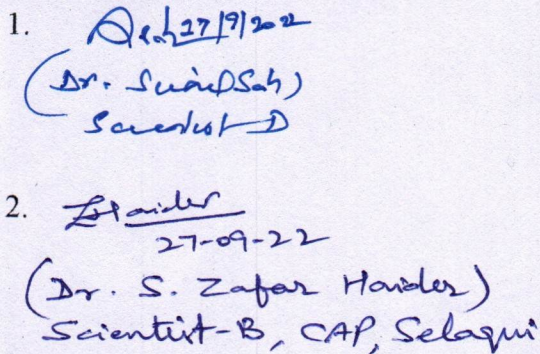 1. 27/9/2022
(Dr. Sunil Sah)
Scientist D
2. Haider
27-09-22
(Dr. S. Zafar Haider)
Scientist-B, CAP, Selaqui